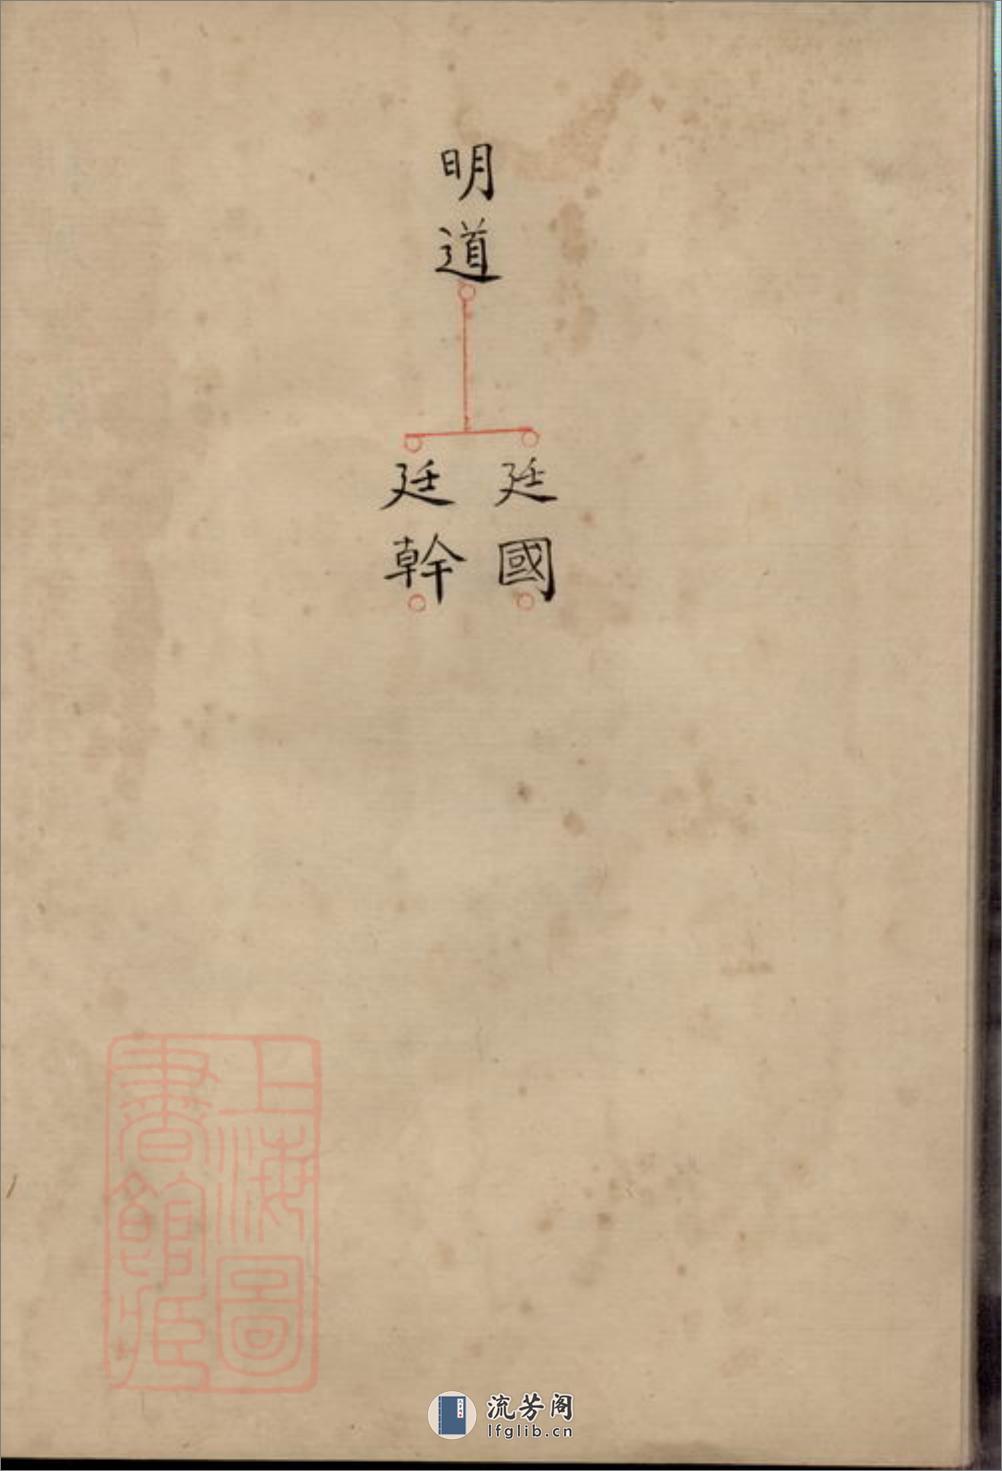 明道
廷國
廷幹
上海圖
書館藏
流芳阁
lfglib.cn